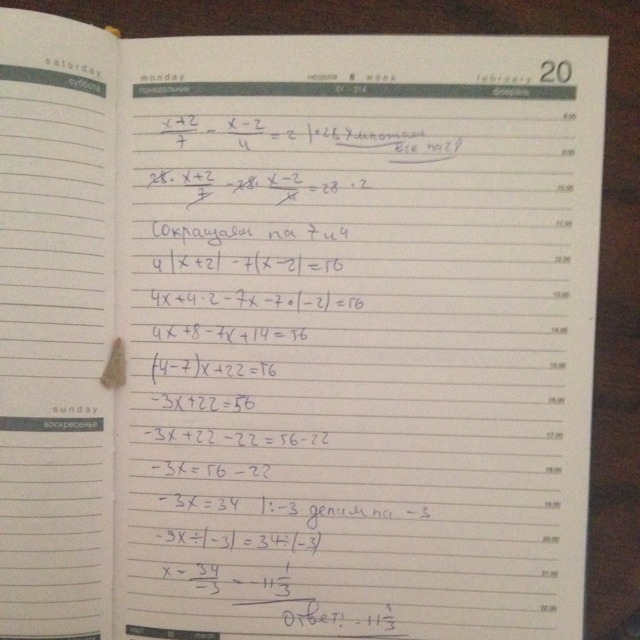 saturday
суббота
monday неделя 8 week february 20
понедельник 51 - 314 февраль
8.00
(x+2)/7 - (x-2)/4 = 2 |•28 умножаем
все на 28
9.00
28 • (x+2)/7 - 28 • (x-2)/4 = 28 • 2
10.00
11.00
Сокращаем на 7 и 4
4(x+2) - 7(x-2) = 56
12.00
4x+4•2-7x-7•(-2)=56
13.00
4x+8-7x+14=56
14.00
(4-7)x+22=56
15.00
-3x+22=56
16.00
sunday
воскресенье
-3x+22-22=56-22
17.00
-3x=56-22
18.00
-3x=34 |:-3 делим на -3
19.00
-3x÷(-3)=34÷(-3)
20.00
x = 34/-3 = -11 1/3
21.00
Ответ: -11 1/3
22.00